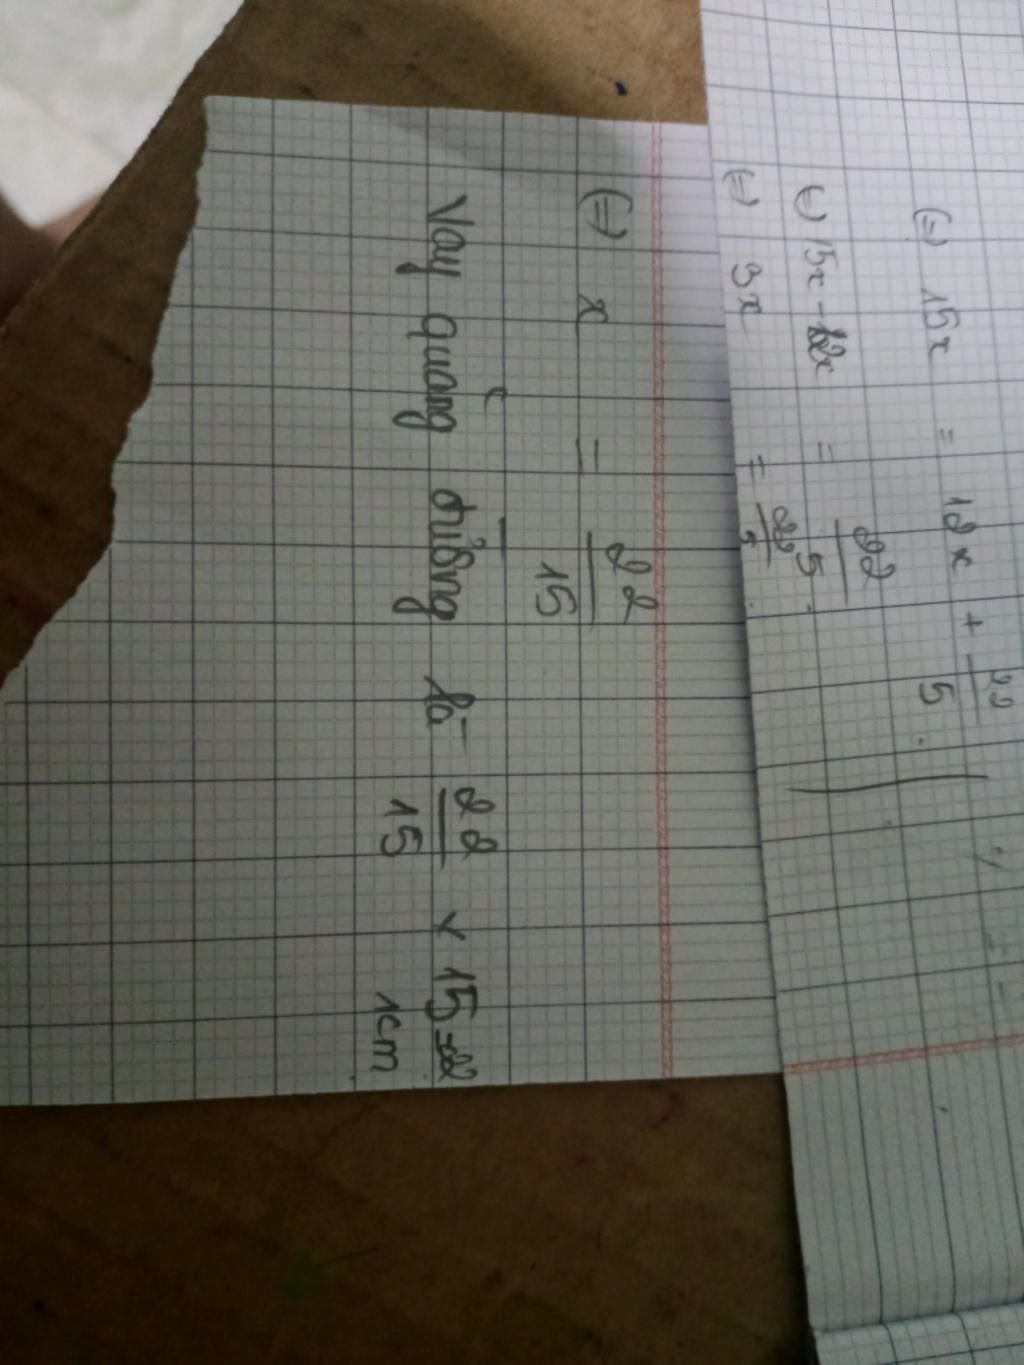 (=) 15x = 12x + 22/5
(=) 15x - 12x = 22/5
(=) 3x = 22/5
(=) x = 22/15
Vay quãng đường là 22/15 x 15 = 22
1cm